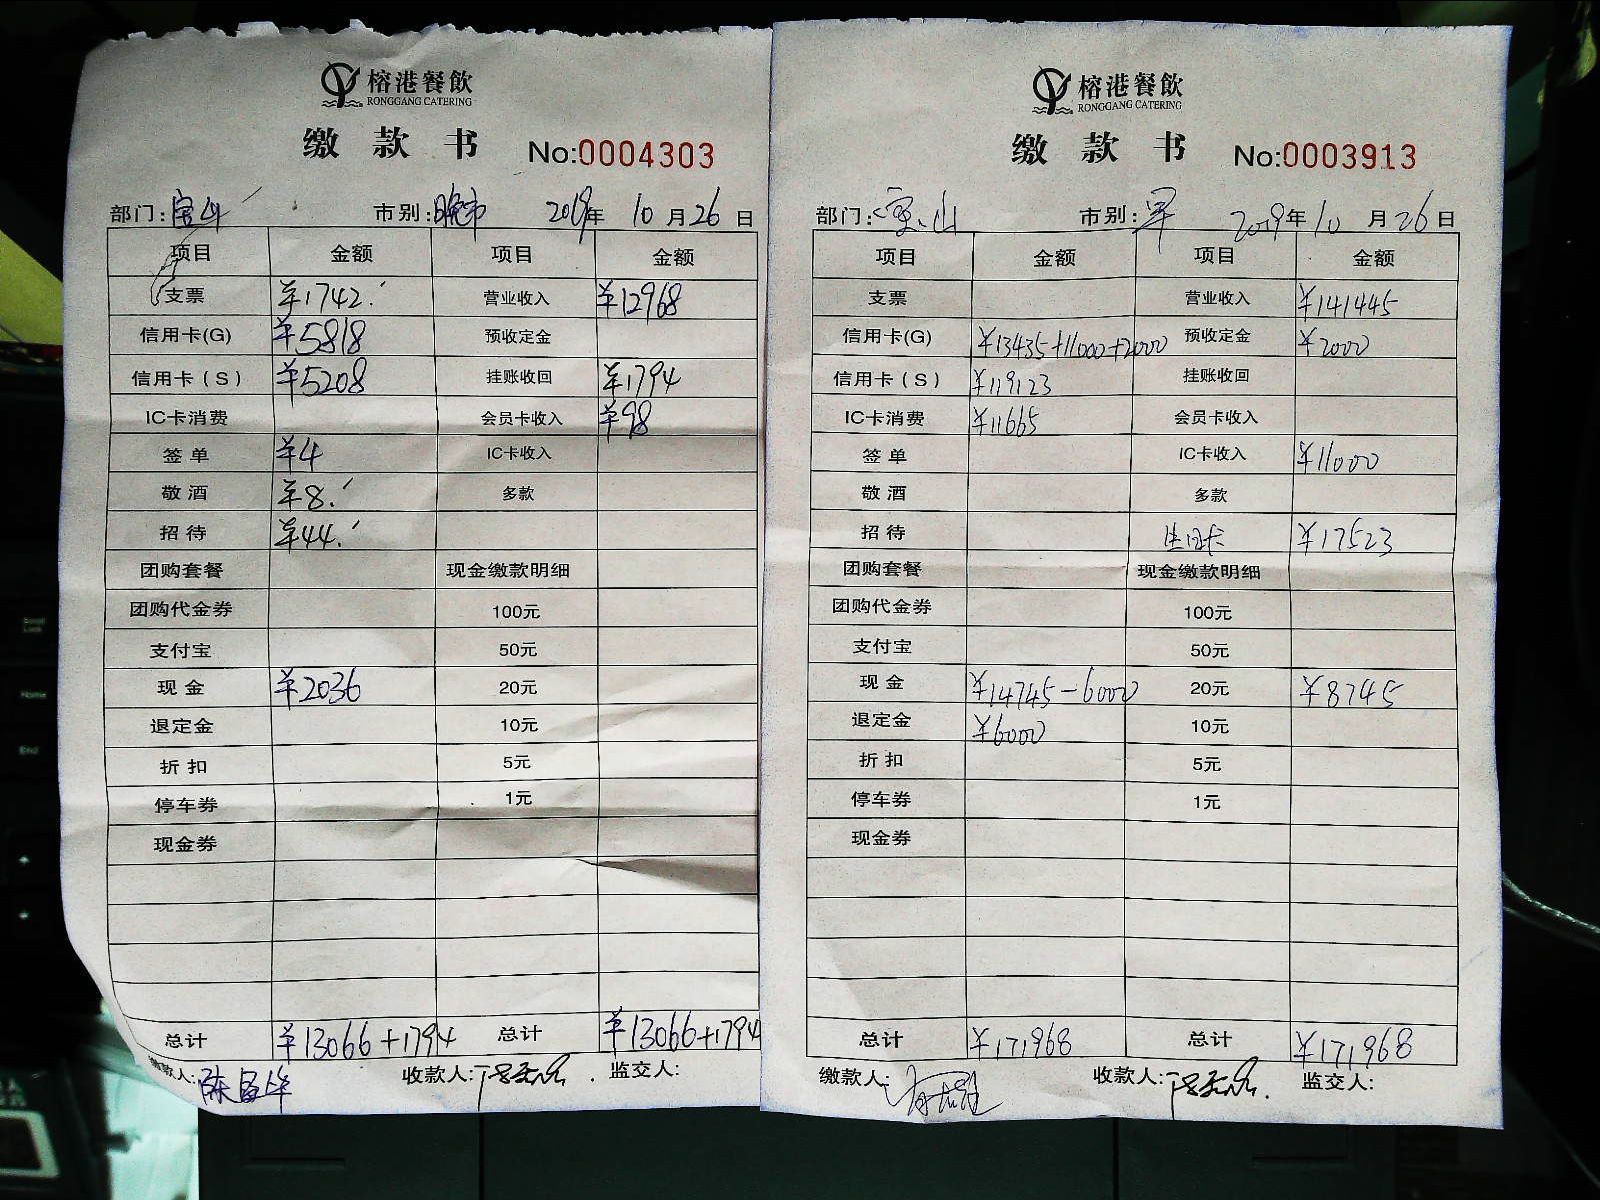 榕港餐飲
RONGGANG CATERING
缴款书 No:0004303
部门:宝山 市别:晚市 2019年10月26日
项目 金额 项目 金额
支票 ¥1742. 营业收入 ¥12968
信用卡(G) ¥5818 预收定金
信用卡(S) ¥5208 挂账收回 ¥1794
IC卡消费 会员卡收入 ¥98
签单 ¥4 IC卡收入
敬酒 ¥8. 多款
招待 ¥44.
团购套餐 现金缴款明细
团购代金券 100元
支付宝 50元
现金 ¥2036 20元
退定金 10元
折扣 5元
停车券 1元
现金券
总计 ¥13066+1794 总计 ¥13066+1794
缴款人: 收款人: 监交人:
榕港餐飲
RONGGANG CATERING
缴款书 No:0003913
部门:宝山 市别:早 2019年10月26日
项目 金额 项目 金额
支票 营业收入 ¥141445
信用卡(G) ¥13435+11000+2000 预收定金 ¥2000
信用卡(S) ¥119123 挂账收回
IC卡消费 ¥11665 会员卡收入
签单 IC卡收入 ¥11000
敬酒 多款
招待 ¥17523
团购套餐 现金缴款明细
团购代金券 100元
支付宝 50元
现金 ¥14745-6000 20元 ¥8745
退定金 ¥6000 10元
折扣 5元
停车券 1元
现金券
总计 ¥171968 总计 ¥171968
缴款人: 收款人: 监交人: